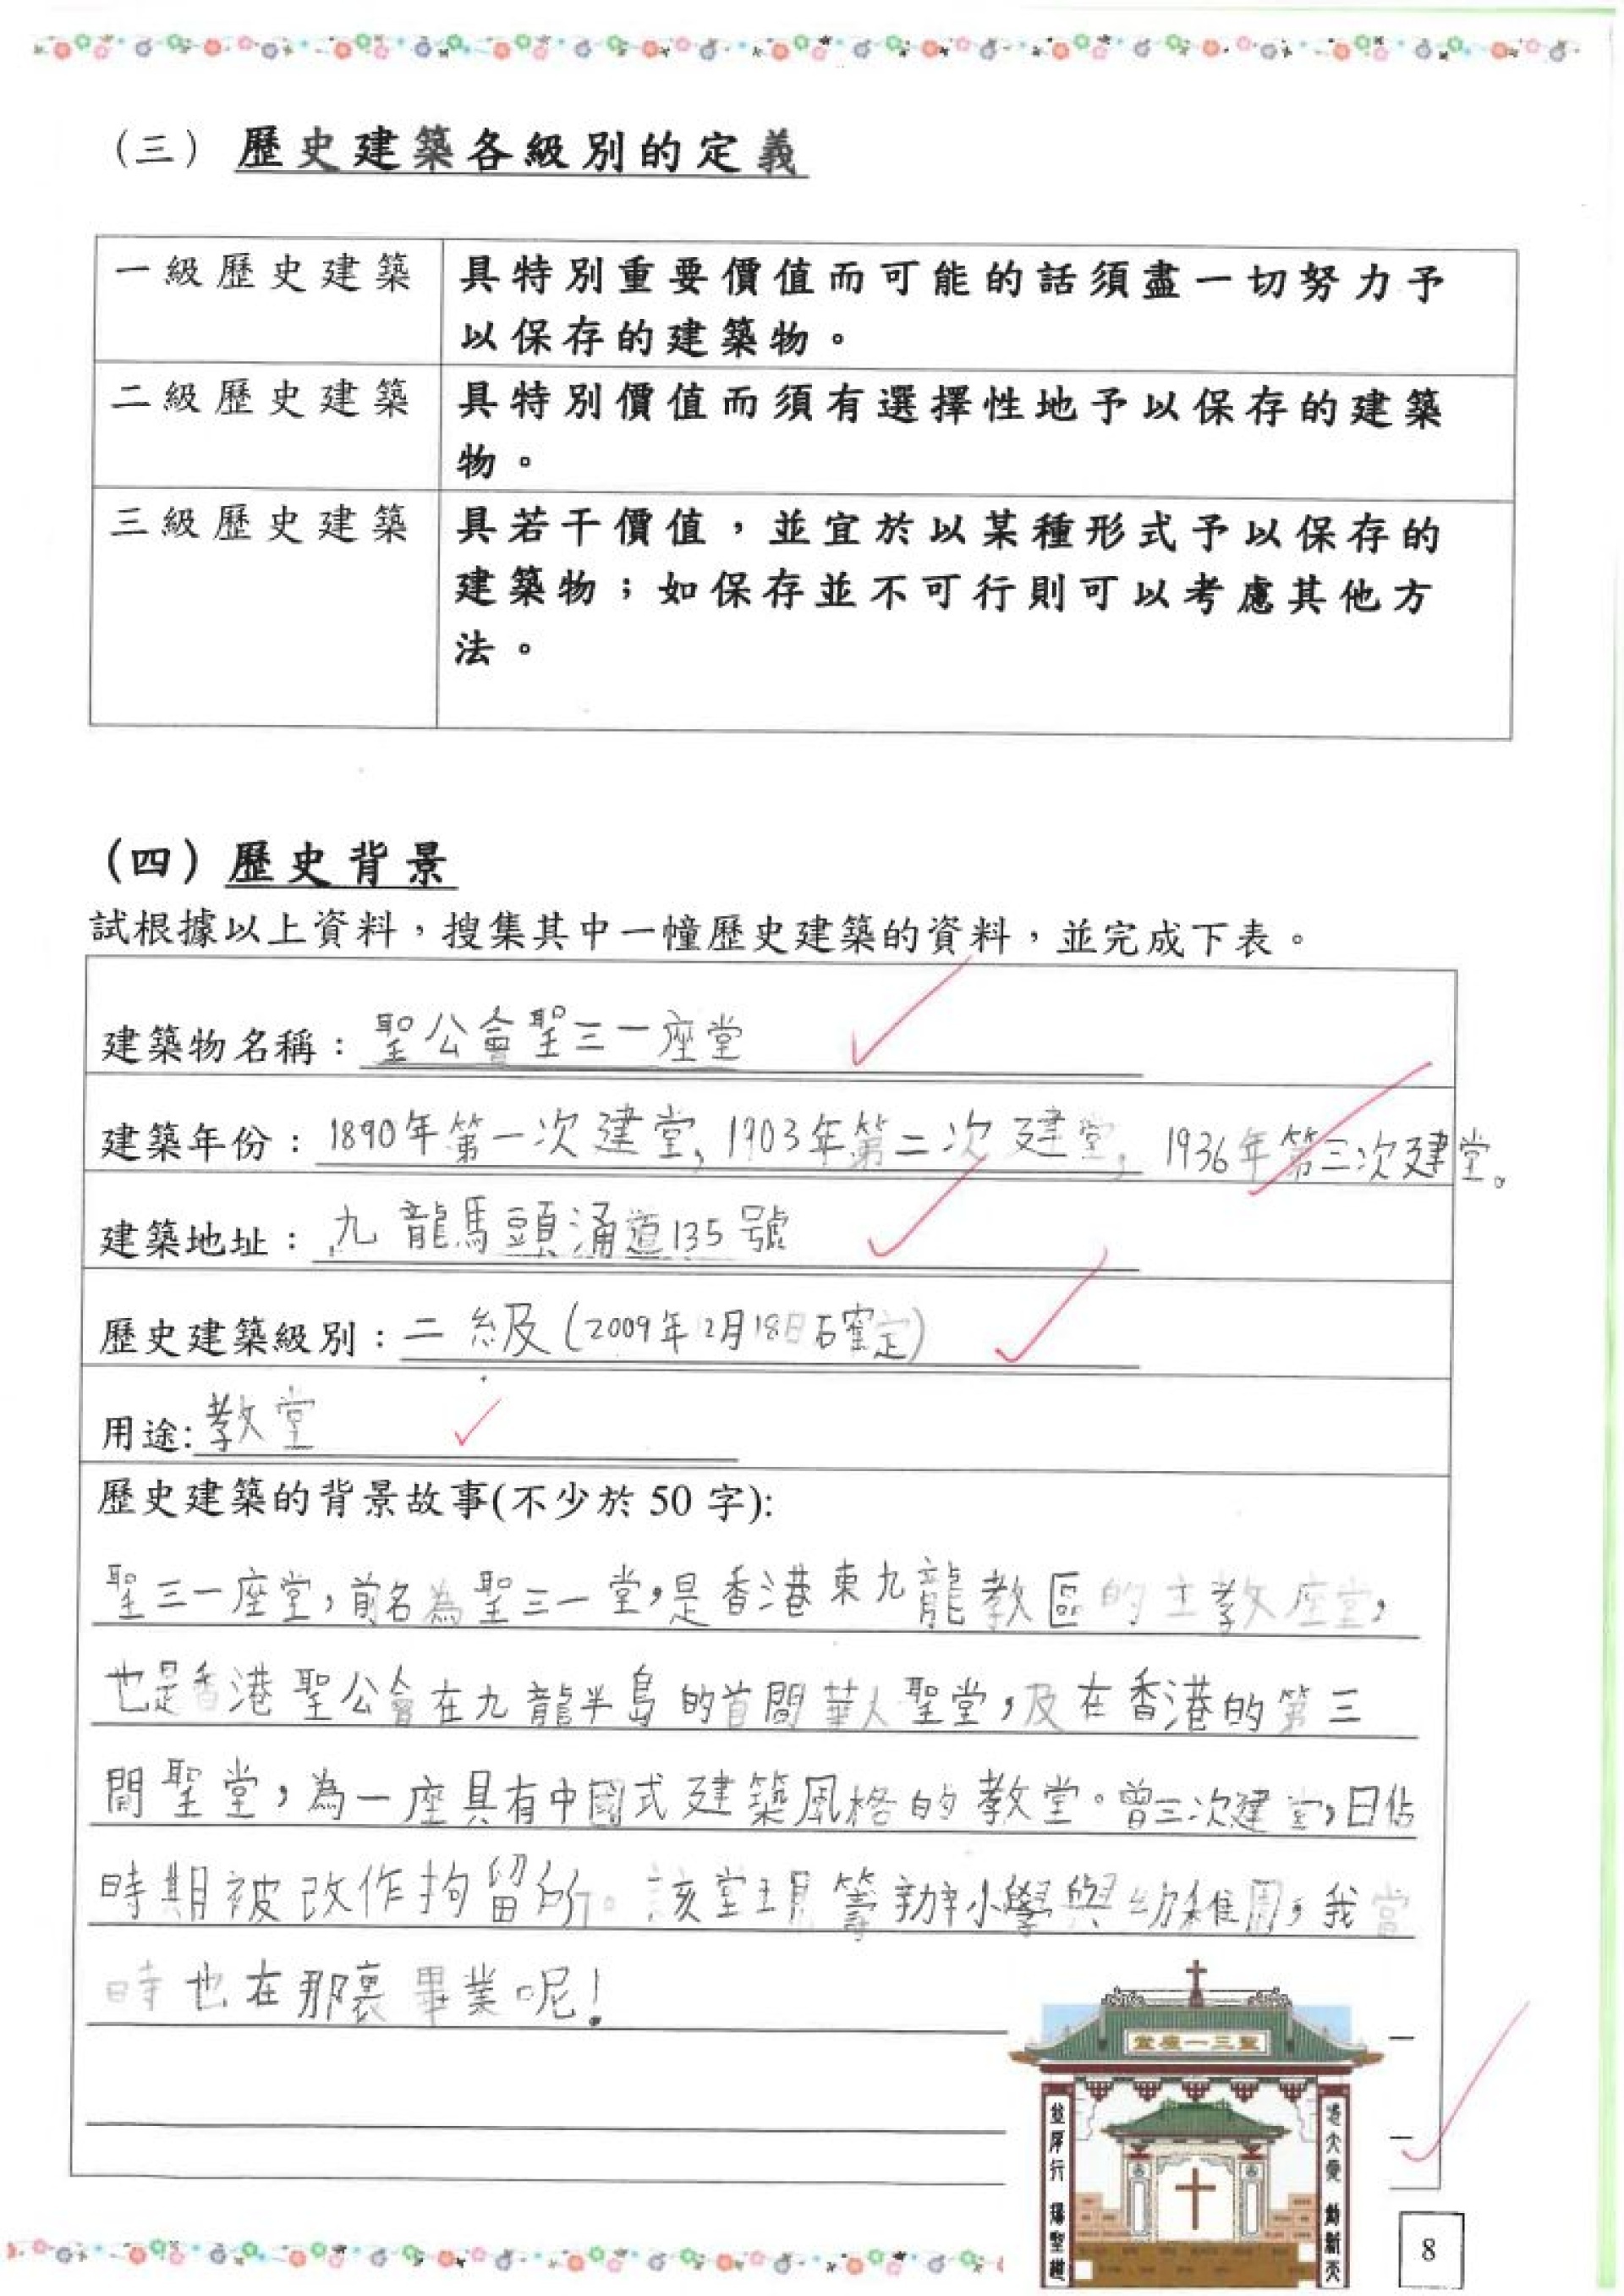 (三) 歷史建築各級別的定義
一級歷史建築 具特別重要價值而可能的話須盡一切努力予
以保存的建築物。
二級歷史建築 具特別價值而須有選擇性地予以保存的建築
物。
三級歷史建築 具若干價值，並宜於以某種形式予以保存的
建築物；如保存並不可行則可以考慮其他方
法。
(四) 歷史背景
試根據以上資料，搜集其中一幢歷史建築的資料，並完成下表。
建築物名稱：聖公會聖三一座堂
建築年份：1890年第一次建堂，1903年第二次建堂，1936年第三次建堂。
建築地址：九龍馬頭涌道135號
歷史建築級別：二級(2009年12月18日確定)
用途:教堂
歷史建築的背景故事(不少於50字):
聖三一座堂，前名為聖三一堂，是香港東九龍教區的主教座堂，
也是香港聖公會在九龍半島的首間華人聖堂，及在香港的第三
間聖堂，為一座具有中國式建築風格的教堂。曾三次建堂，日佔
時期被改作拘留所。該堂現籌辦小學與幼稚園，我當
時也在那裏畢業呢！
堂座一三聖
並厚行 揚聖道
大愛 新天
8